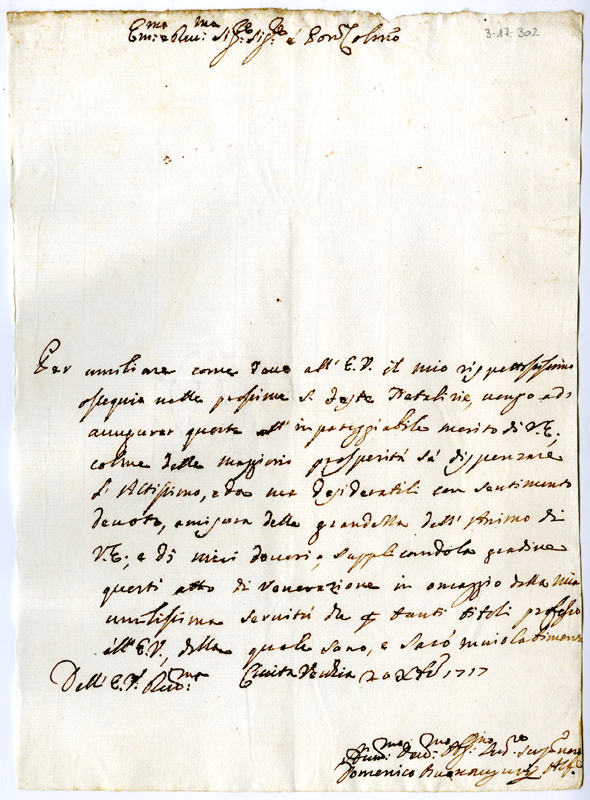 Em:mo e Rev:mo Sig:re Sig:re e Pron Colmo
3-17-302
Per umiliare come devo all' E.V. il mio rispettosissimo
ossequio nelle prossime S. Feste Natalizie, vengo ad
augurar queste all' impareggiabile merito di V.E.
colme delle maggiori prosperità sà dispensare
l' Altissimo, e da me desiderabili con sentimento
devoto, a misura della grandezza dell' Animo di
V.E., e di miei doveri, supplicandola gradire
questi atto di venerazione in omaggio della mia
umilissima servitù che p tanti titoli professo
all' E.V., della quale sono, e sarò
Dell' E.V. Rev:ma Civita Vecchia 20 Xbre 1717
Domenico